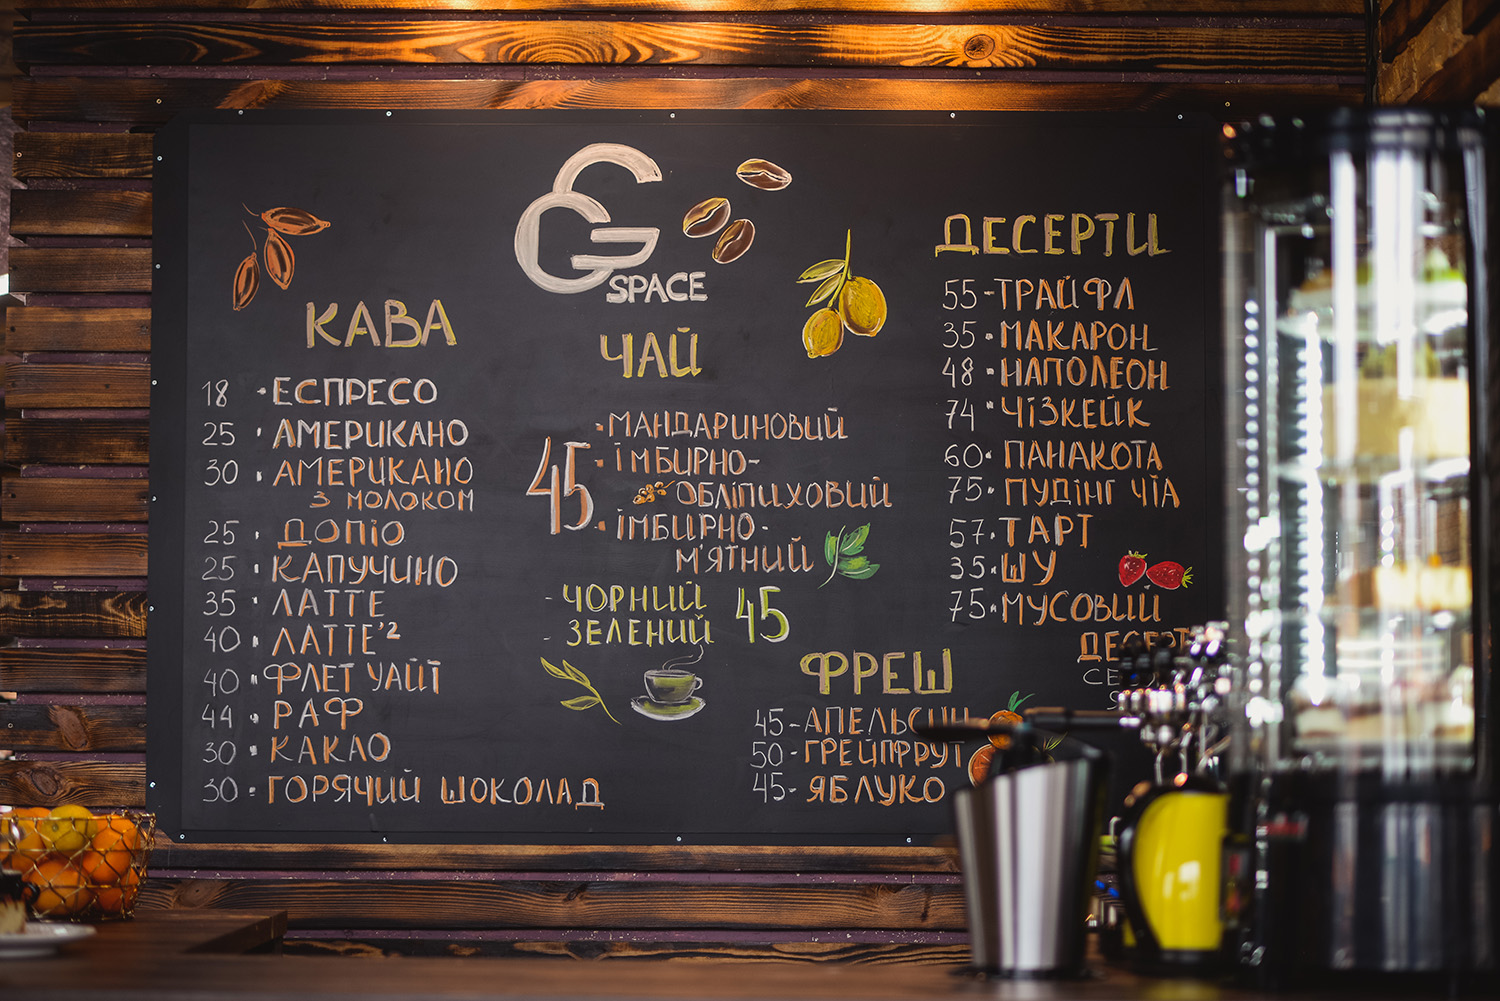 G SPACE
КАВА
18 · ЕСПРЕСО
25 · АМЕРИКАНО
30 · АМЕРИКАНО
З МОЛОКОМ
25 · ДОПІО
25 · КАПУЧИНО
35 · ЛАТТЕ
40 · ЛАТТЕ'2
40 · ФЛЕТ УАЙТ
44 · РАФ
30 · КАКАО
30 · ГОРЯЧИЙ ШОКОЛАД
ЧАЙ
45
· МАНДАРИНОВИЙ
· ІМБИРНО-
ОБЛІПИХОВИЙ
· ІМБИРНО-
М'ЯТНИЙ
- ЧОРНИЙ
- ЗЕЛЕНИЙ
45
ДЕСЕРТИ
55 - ТРАЙФЛ
35 · МАКАРОН
48 · НАПОЛЕОН
74 · ЧІЗКЕЙК
60 · ПАНАКОТА
75 · ПУДІНГ ЧІА
57 · ТАРТ
35 · ШУ
75 · МУСОВИЙ
ФРЕШ
45 - АПЕЛЬСИН
50 - ГРЕЙПФРУТ
45 - ЯБЛУКО